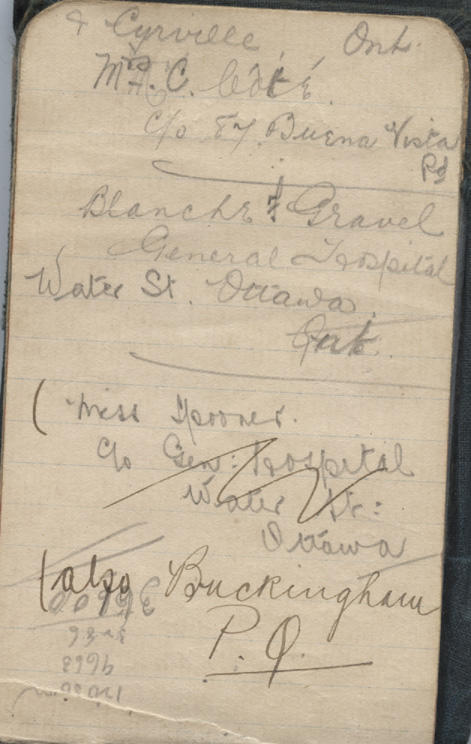 & Cyrville Ont.
Mrs. C. Côté.
c/o 87. Buena Vista
Rd
Blanche & Gravel
General Hospital
Water St. Ottawa.
Ont.
( Miss Spooner.
c/o Gen: Hospital
Water St:
Ottawa
(also Buckingham
P.Q.